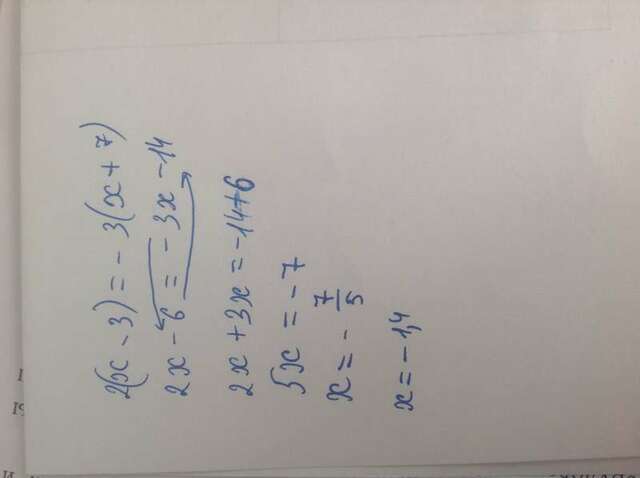 2(x - 3) = - 3(x + 7)
2x - 6 = - 3x - 14
2x + 3x = -14+6
5x = - 7
x = - 7/5
x = - 1,4